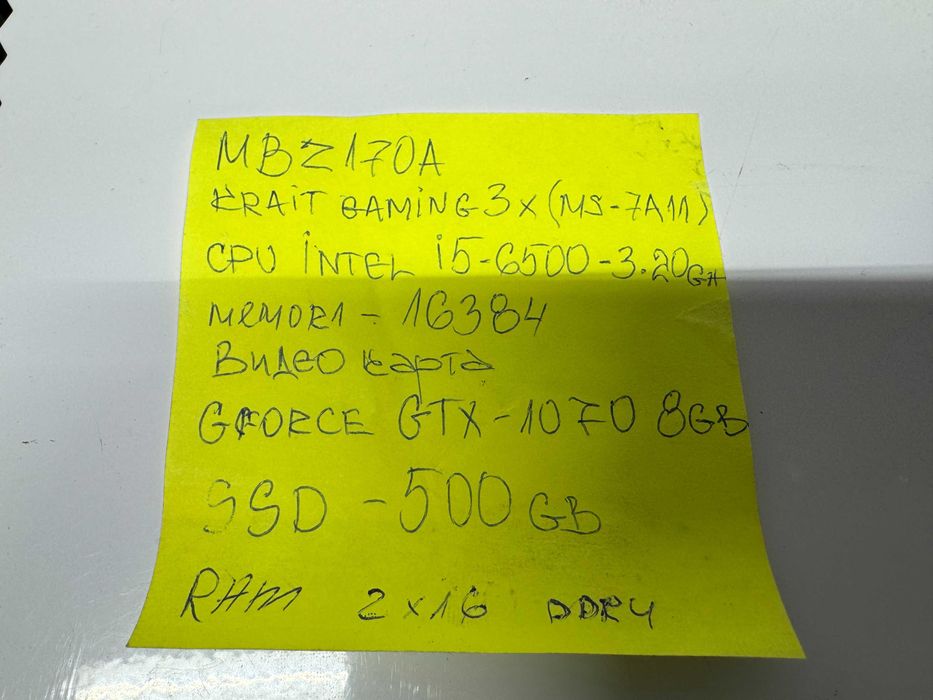 MB Z170A
KRAIT GAMING 3x (MS-7A11)
CPU INTEL i5-6500-3.20GH
MEMORI - 16384
Видео карта
GFORCE GTX-1070 8GB
SSD - 500 GB
RAM 2x16 DDR4